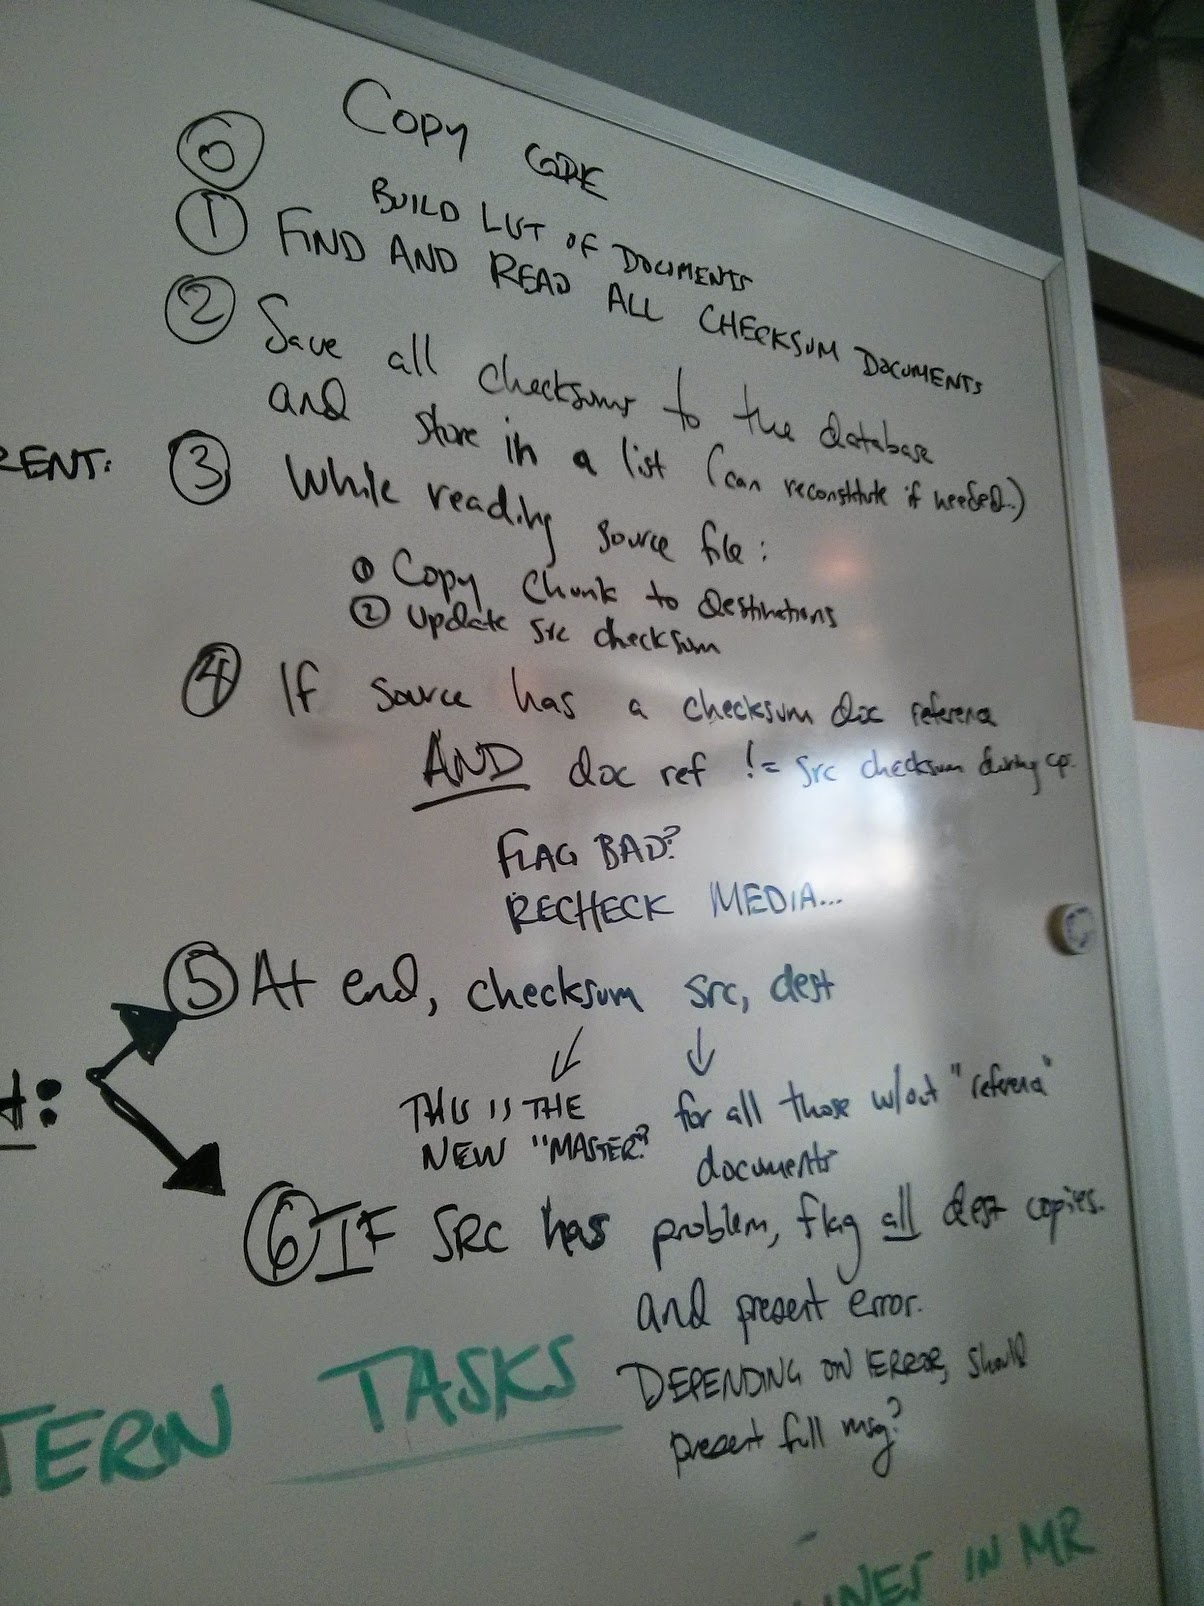 Copy CODE
⓪ BUILD LIST OF DOCUMENTS
① FIND AND READ ALL CHECKSUM DOCUMENTS
② Save all checksums to the database
and store in a list (can reconstitute if needed.)
RENT: ③ While reading source file:
① Copy Chunk to Destinations
② Update src checksum
④ If source has a checksum doc reference
AND doc ref != src checksum during cp.
FLAG BAD?
RECHECK MEDIA...
⑤ At end, checksum src, dest
THIS IS THE
NEW "MASTER?"
for all those w/out "reference"
documents
⑥ IF SRC has problem, flag all dest copies.
and present error.
DEPENDING ON ERROR, should
present full msg?
TERN TASKS
INES IN MR